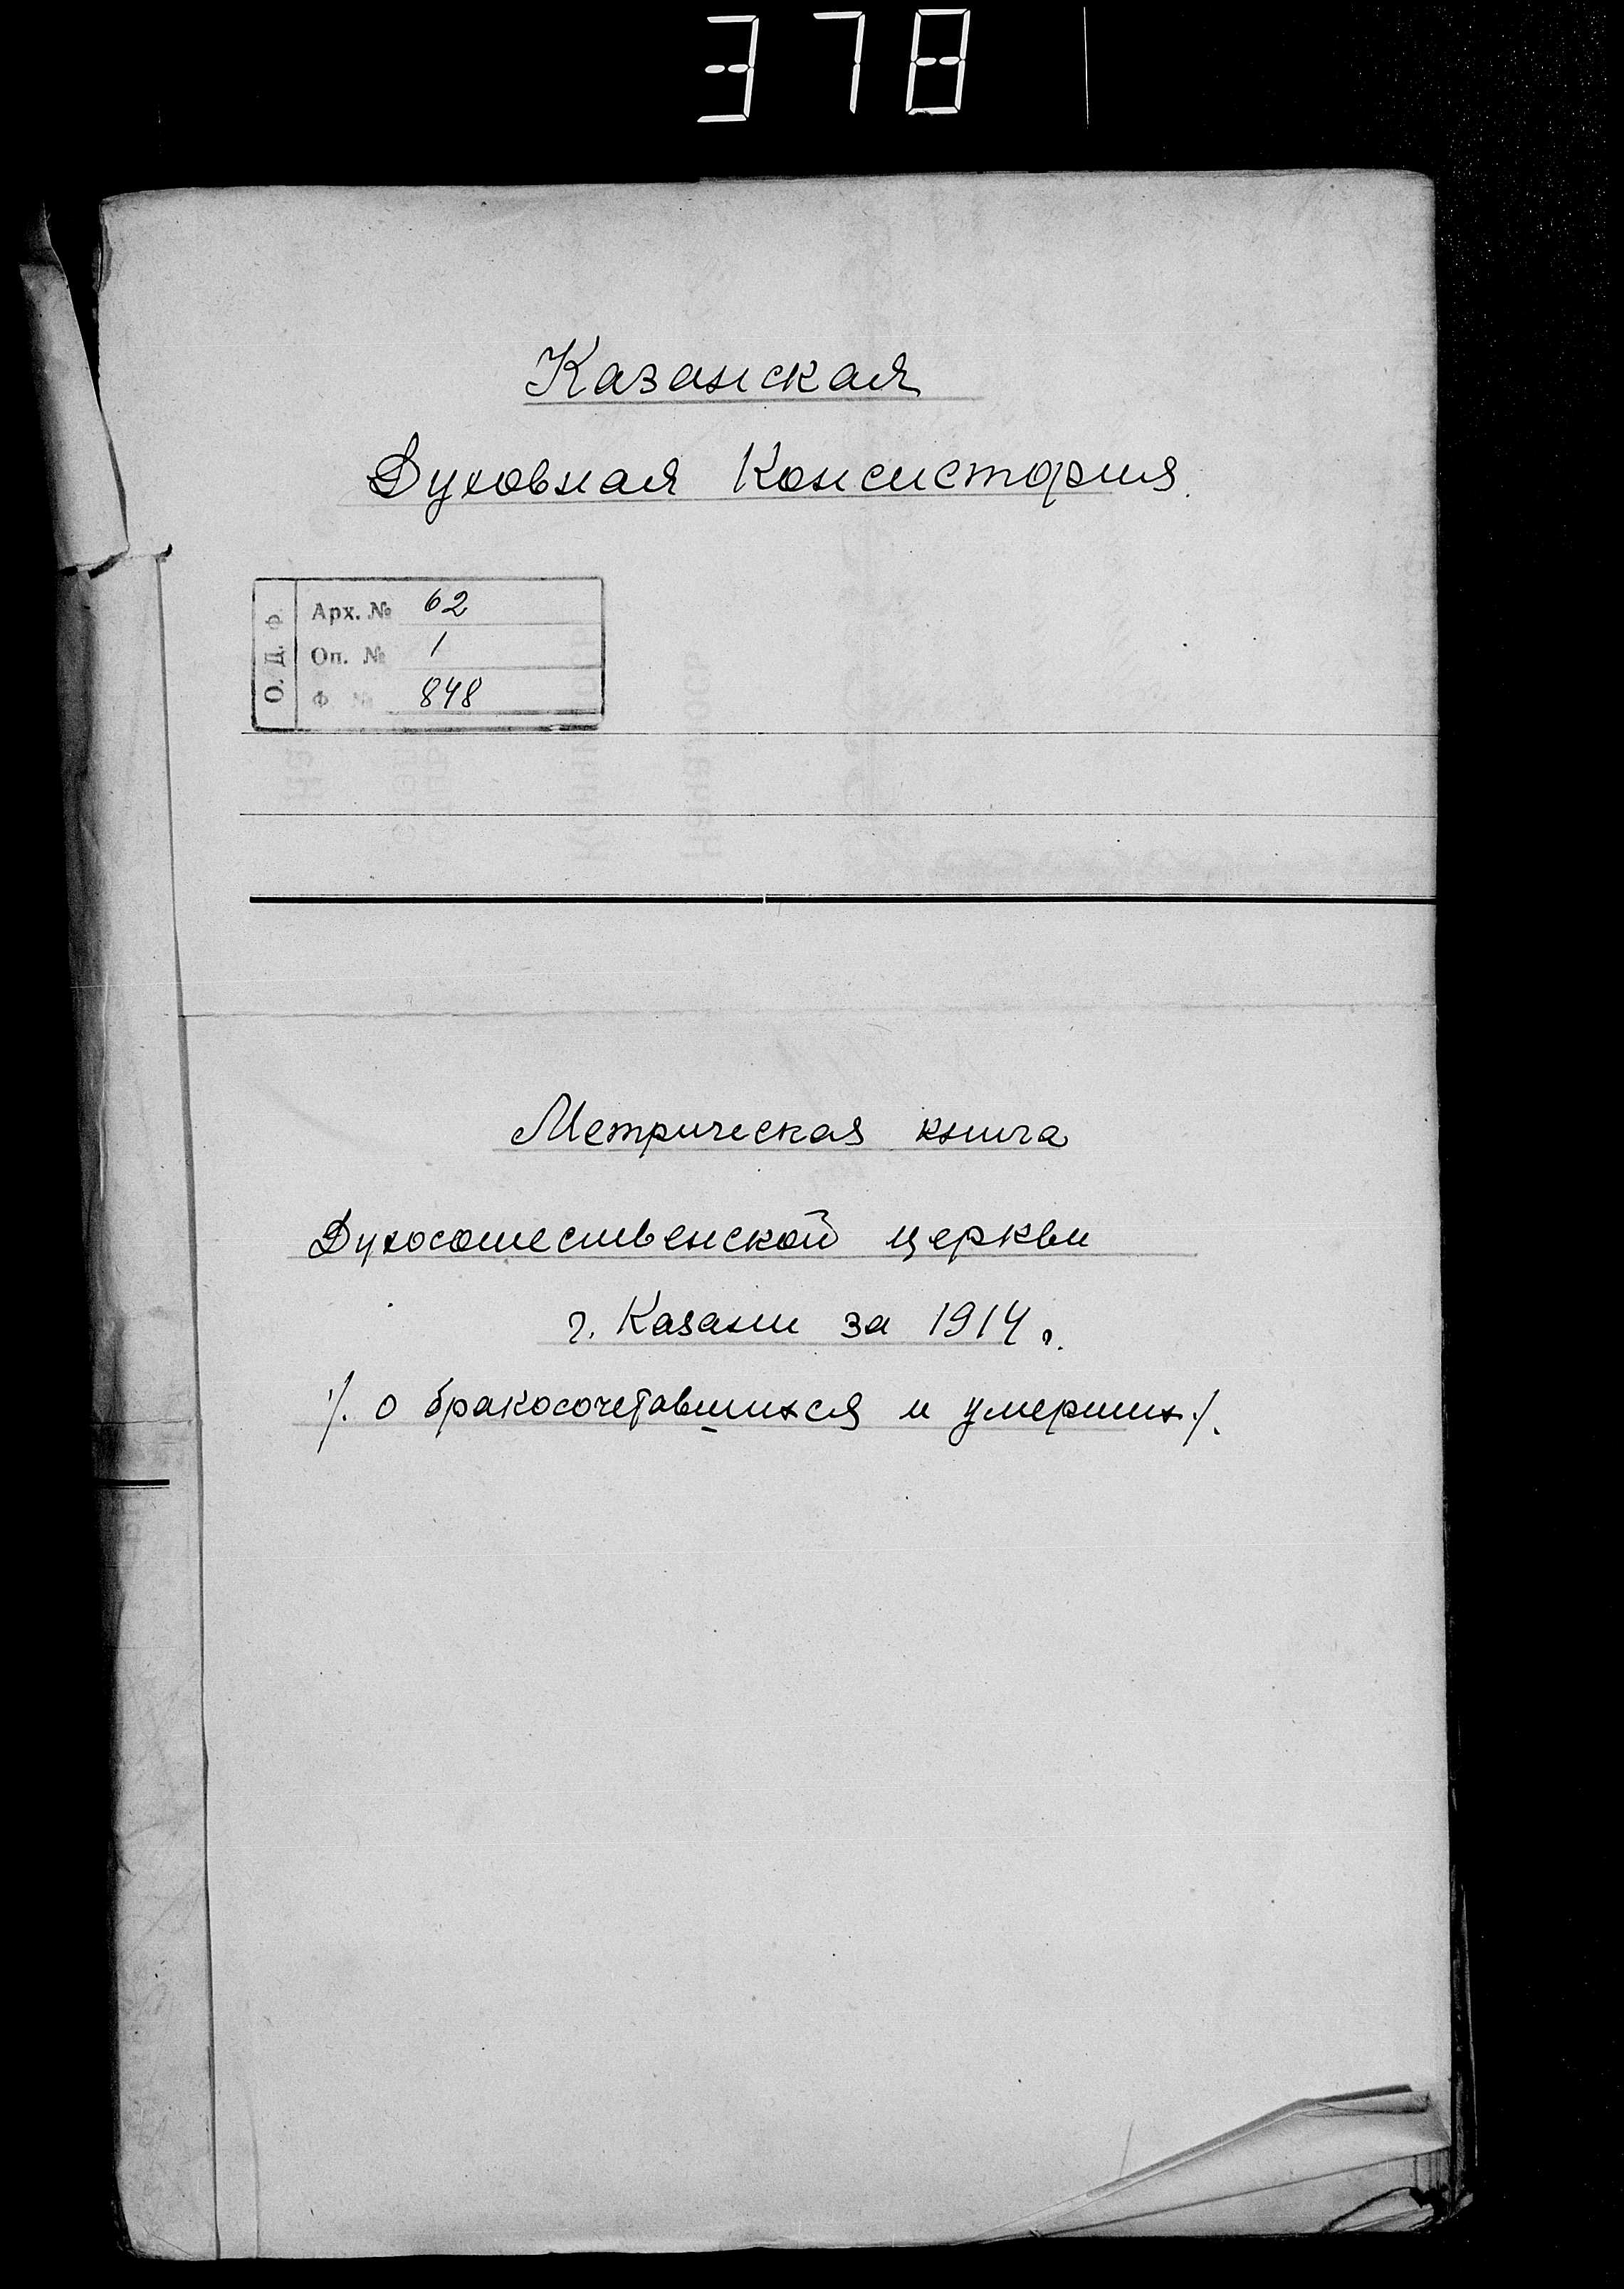 378
Казанская
Духовная Консистория.
О. Д. Ф.
Арх. № 62
Оп. № 1
Ф № 848
Метрическая книга
Духосошественской церкви
г. Казани за 1914 г.
/. о бракосочетавшихся и умерших./.